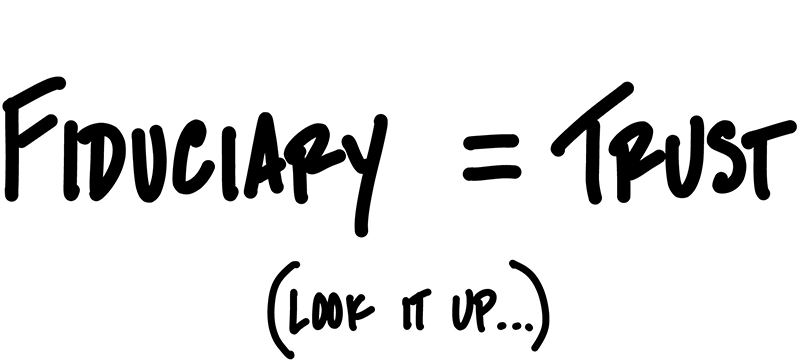 FIDUCIARY = TRUST
(LOOK IT UP...)